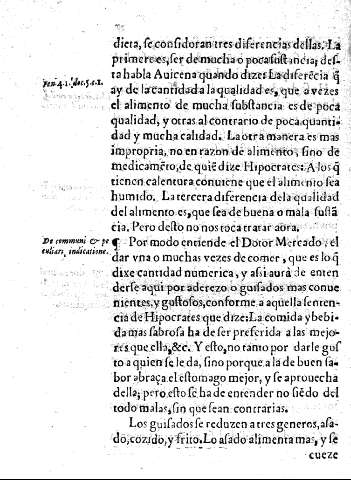 dieta, se consideran tres diferencias dellas. La
primere es, ser de mucha o poca sustancia; des-
ta habla Auicena quando dize: La diferẽcia q̃
fen. 4. 1. doc. 5. c. 1.
ay de la cantidad a la qualidad es, que a vezes
el alimento de mucha substancia es de poca
qualidad, y otras al contrario de poca quanti-
dad y mucha calidad. La otra manera es mas
impropria, no en razon de alimento, sino de
medicamẽto, de quiẽ dize Hipocrates: A los q̃
tienen calentura conuiene que el alimento sea
humido. La tercera diferencia de la qualidad
del alimento es, que sea de buena o mala sustã
cia. Pero desto no nos toca tratar aora.
De communi & pe
culiari, indicatione.
¶ Por modo entiende el Dotor Mercado, el
dar vna o muchas vezes de comer, que es lo q̃
dixe cantidad numerica, y assi aurà de enten
derse aqui por aderezo o guisados mas conue
nientes, y gustosos, conforme a aquella senten-
cia de Hipocrates que dize: La comida y bebi-
da mas sabrosa ha de ser preferida a las mejo-
res que ella, &c. Y esto, no tanto por darle gus
to a quien se le da, sino porque a la de buen sa-
bor abraça el estomago mejor, y se aprouecha
della; pero esto se ha de entender no siẽdo del
todo malas, sin que sean contrarias.
Los guisados se reduzen a tres generos, asa-
do, cozido, y frito. Lo asado alimenta mas, y se
cueze